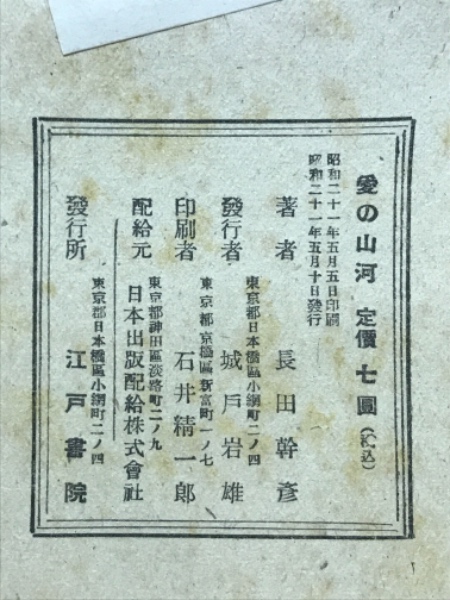 愛の山河 定價七圓(税込)
昭和二十一年五月五日印刷
昭和二十一年五月十日發行
著者 長田幹彦
東京都日本橋區小網町二ノ四
發行者 城戶岩雄
東京都京橋區新富町一ノ七
印刷者 石井精一郎
東京都神田區淡路町二ノ九
配給元 日本出版配給株式會社
東京都日本橋區小網町二ノ四
發行所 江戸書院